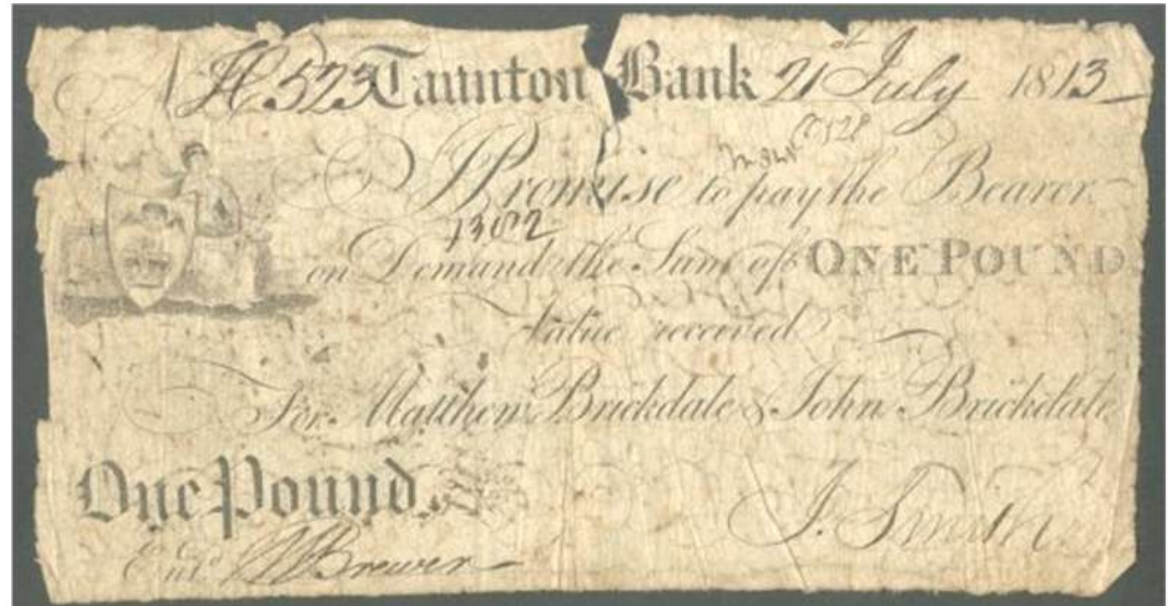 N H523 Taunton Bank 21st July 1813
I Promise to pay the Bearer
13022
on Demand the Sum of ONE POUND
Value received
For Matthew Brickdale & John Brickdale
One Pound
J. Smith
Entd Brewer